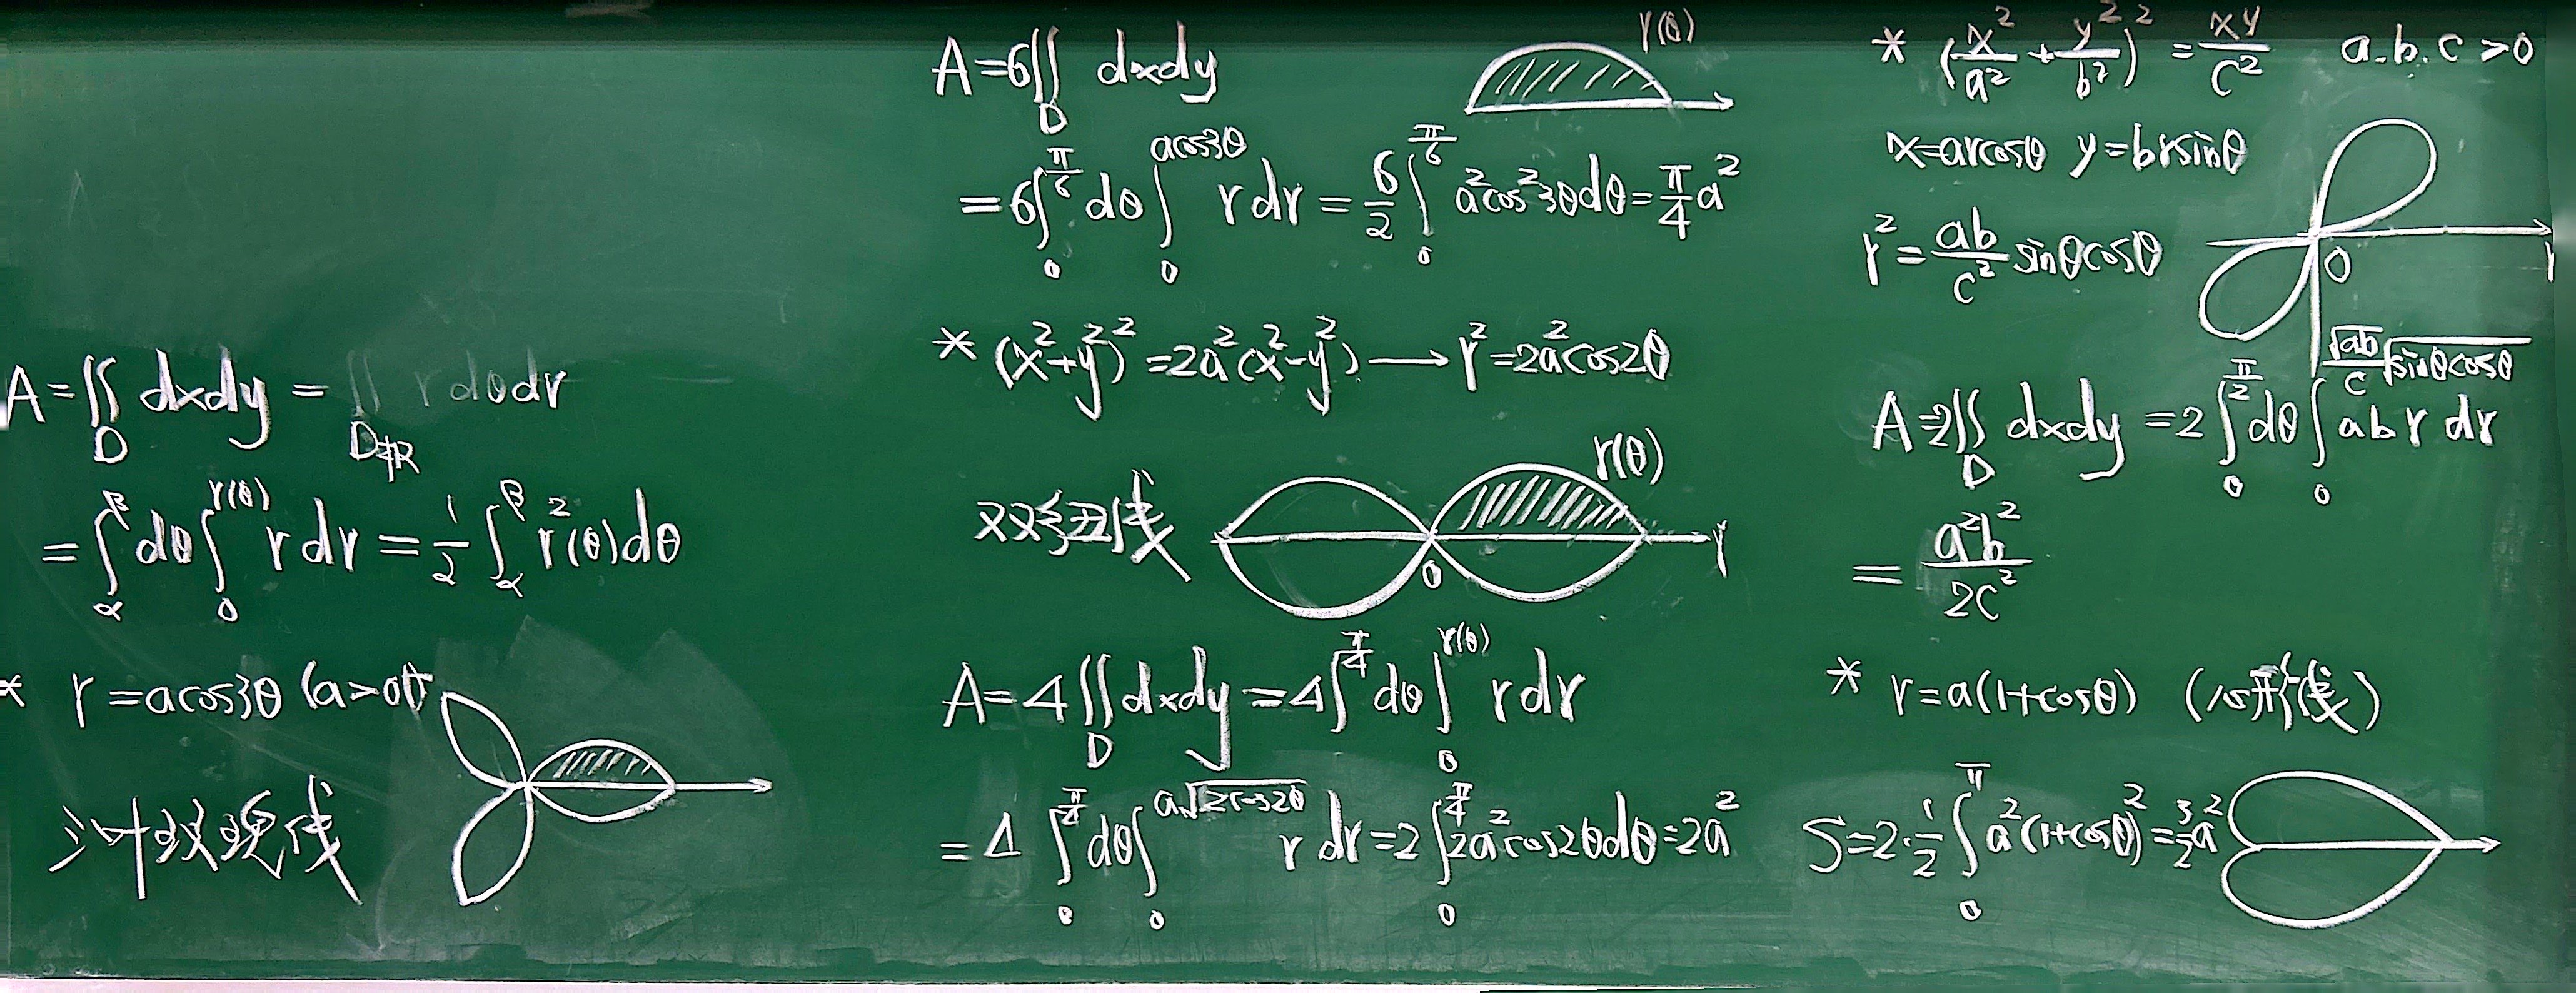 A=∬_D dxdy = ∬_{D极} r dθdr
=∫_α^β dθ∫_0^{r(θ)} r dr = 1/2 ∫_α^β r²(θ)dθ
* r=acos3θ (a>0)
三叶玫瑰线
A=6∬_D dxdy
r(θ)
=6∫_0^{π/6} dθ ∫_0^{acos3θ} r dr = 6/2 ∫_0^{π/6} a²cos²3θdθ = π/4 a²
* (x²+y²)²=2a²(x²-y²) ⟶ r²=2a²cos2θ
双纽线
r(θ)
0
r
A=4∬_D dxdy =4∫_0^{π/4} dθ ∫_0^{r(θ)} r dr
=4 ∫_0^{π/4} dθ∫_0^{a√(2cos2θ)} r dr=2∫_0^{π/4} 2a²cos2θdθ=2a²
* (x²/a² + y²/b²)² = xy/c² a.b.c >0
x=arcosθ y=brsinθ
r²= ab/c² sinθcosθ
0
r
A=2∬_D dxdy =2∫_0^{π/2} dθ ∫_0^{√ab/c √sinθcosθ} ab r dr
= a²b²/2c²
* r=a(1+cosθ) (心形线)
S=2·1/2 ∫_0^π a²(1+cosθ)² = 3/2 a²